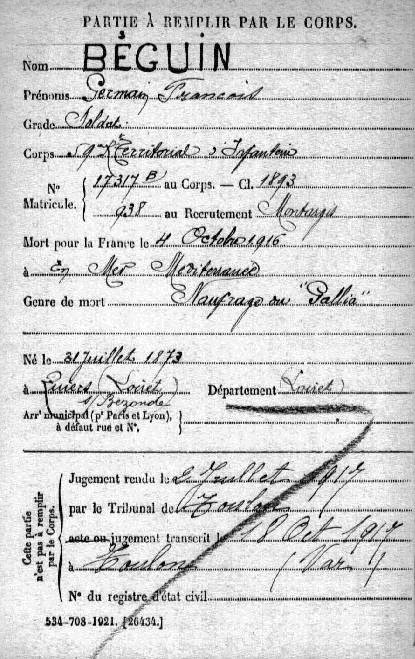 PARTIE À REMPLIR PAR LE CORPS.
Nom BÉGUIN
Prénoms Germain François
Grade Soldat
Corps Territorial d'Infanterie
N° Matricule. 17317 B au Corps. — Cl. 1893
938 au Recrutement Montargis
Mort pour la France le 4 Octobre 1916
à en Mer Mediterranée
Genre de mort Naufrage du "Gallia"
Né le 31 Juillet 1873
à (Loiret) Département Loiret
s/ Bezonde
Arrt municipal (pr Paris et Lyon),
à défaut rue et N°.
Cette partie n'est pas à remplir par le Corps.
Jugement rendu le 2 Juillet 1917
par le Tribunal de Toulon
acte ou jugement transcrit le 18 Oct 1917
à Toulon (Var)
N° du registre d'état civil
534-708-1921. [26434.]